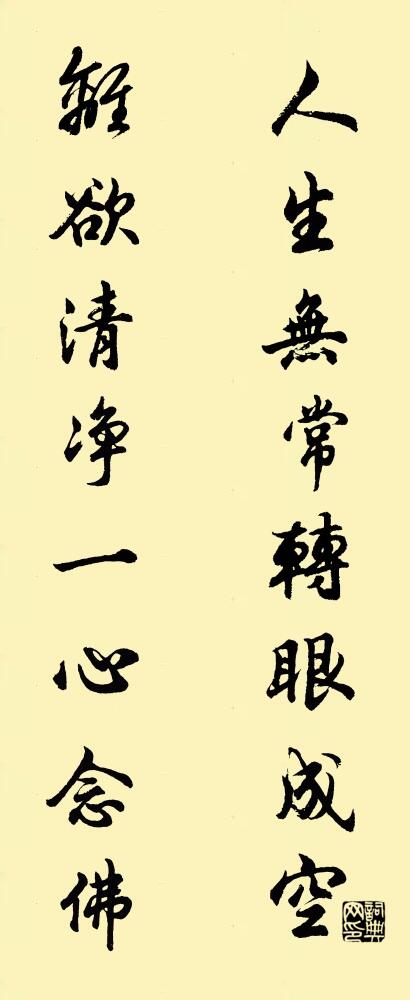 人生無常轉眼成空
離欲清淨一心念佛
詞典网印